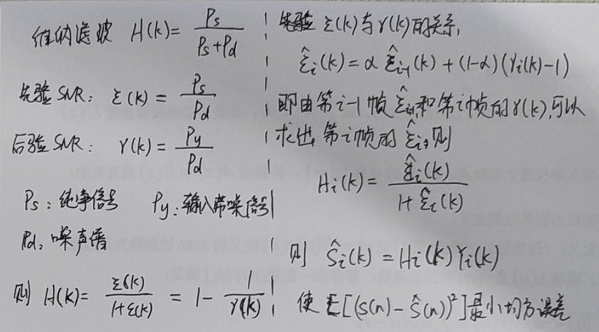 维纳滤波 H(k)= Ps / (Ps+Pd)
先验SNR: ε(k)= Ps / Pd
后验SNR: γ(k)= Py / Pd
Ps: 纯净信号 Py: 输入带噪信号
Pd: 噪声谱
则 H(k)= ε(k) / (1+ε(k)) = 1- 1 / γ(k)
先验 ε(k)与γ(k)的关系,
ε̂i(k)=α ε̂i-1(k)+(1-α)(γi(k)-1)
即由第i-1帧ε̂i-1和第i帧的γ(k),可以
求出第i帧的ε̂i,则
Hi(k)= ε̂i(k) / (1+ε̂i(k))
则 Ŝi(k)=Hi(k)Yi(k)
使E[(s(n)-ŝ(n))²]最小均方误差